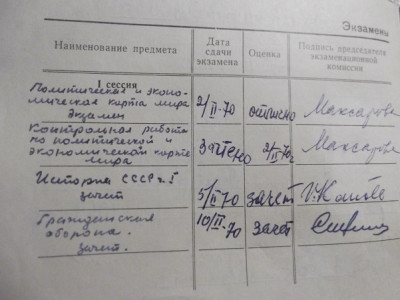 Экзамены
Наименование предмета
Дата сдачи экзамена
Оценка
Подпись председателя экзаменационной комиссии
I сессия
Политическая и эконо-
мическая карта мира
Экзамен
2/II-70
отлично
Максарова
Контрольная работа
по политической и
экономической карте
мира
Зачтено
2/II-70
Максарова
История СССР
зачет
5/II 70
зачет
Гражданская
оборона.
зачет.
10/II-70
зачет